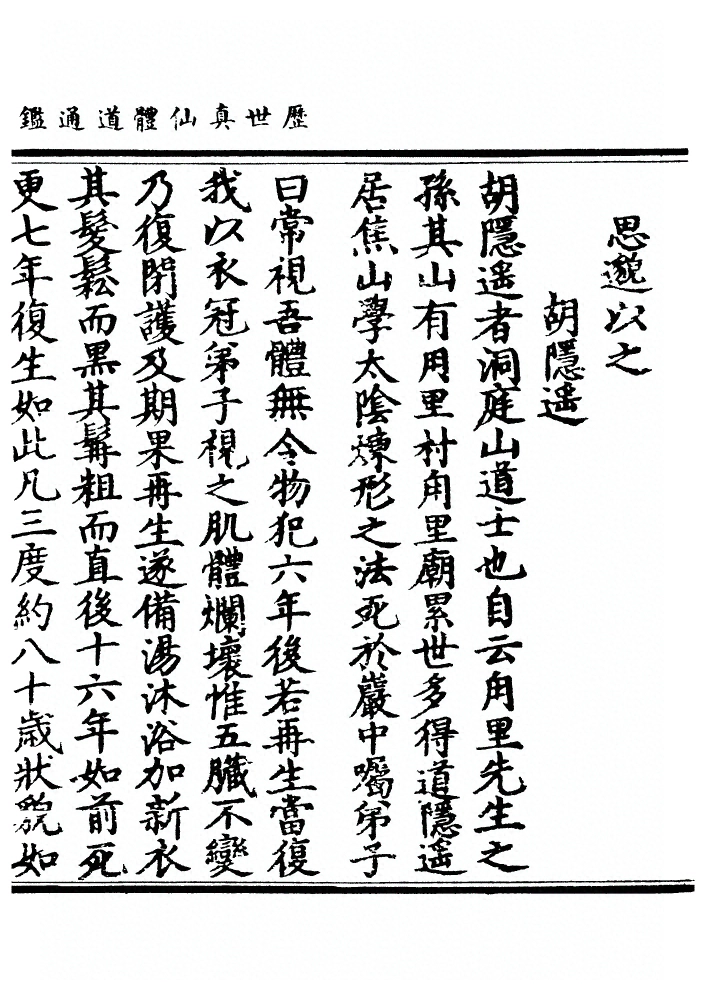 歷世真仙體道通鑑
思邈以之
胡隱遥
胡隱遥者洞庭山道士也自云角里先生之
孫其山有用里村角里廟累世多得道隱遥
居焦山學太陰煉形之法死於巖中囑弟子
曰常視吾體無令物犯六年後若再生當復
我以衣冠弟子視之肌體爛壞惟五臟不變
乃復閉護及期果再生遂備湯沐浴加新衣
其髮鬆而黑其髯粗而直後十六年如前死
更七年復生如此凡三度約八十歲狀貌如